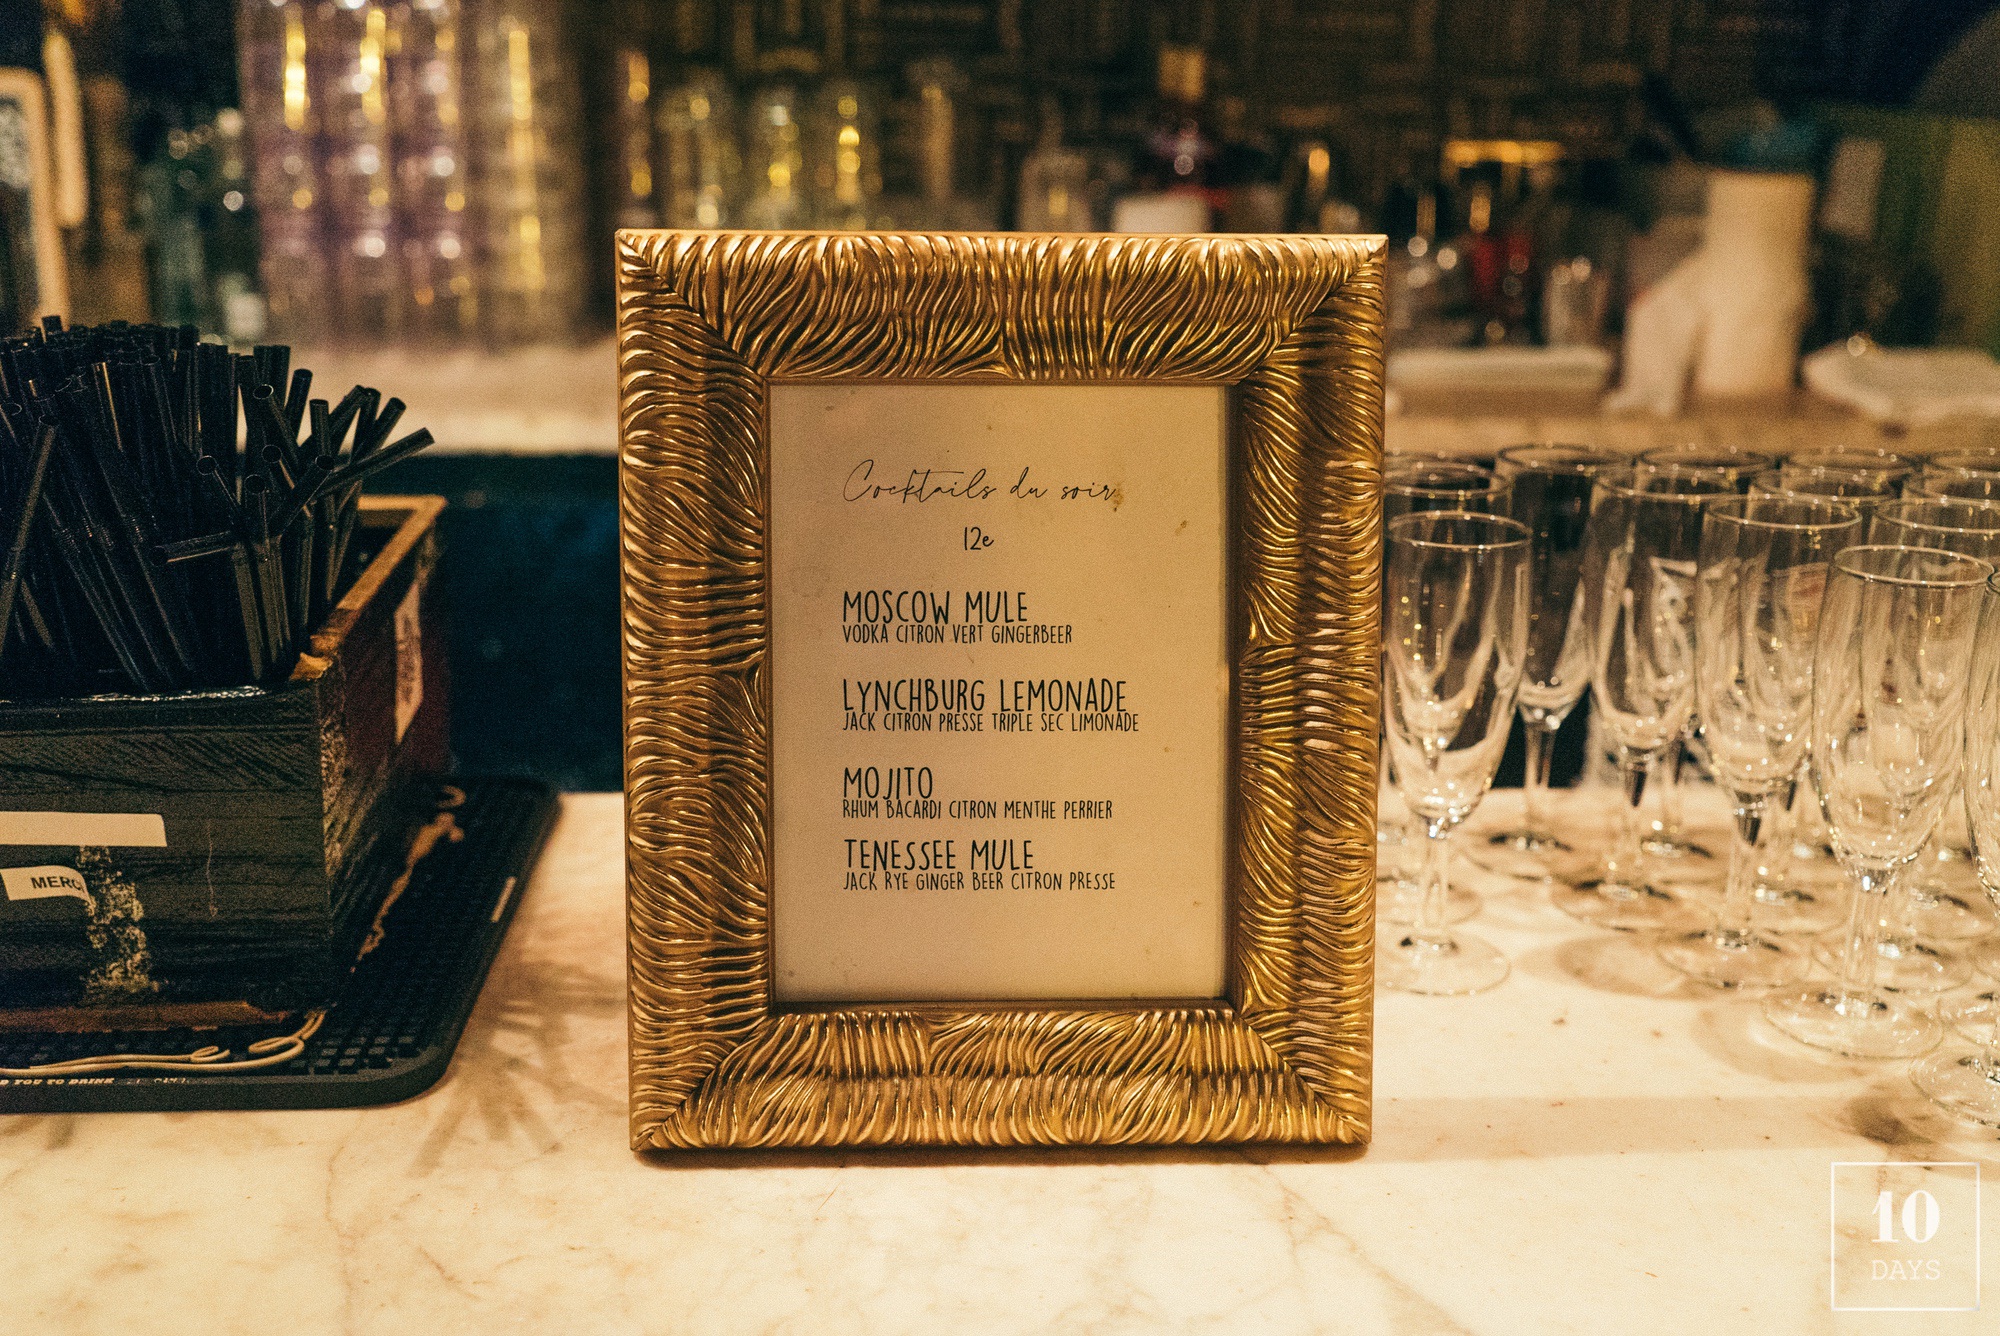 Cocktails du soir
12e
MOSCOW MULE
VODKA CITRON VERT GINGERBEER
LYNCHBURG LEMONADE
JACK CITRON PRESSE TRIPLE SEC LIMONADE
MOJITO
RHUM BACARDI CITRON MENTHE PERRIER
TENESSEE MULE
JACK RYE GINGER BEER CITRON PRESSE
MERCI
YOU TO DRINK
10
DAYS